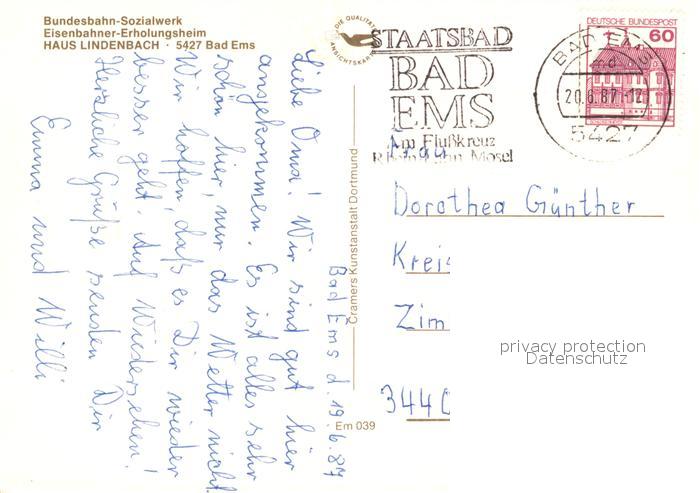 Bundesbahn-Sozialwerk
Eisenbahner-Erholungsheim
HAUS LINDENBACH · 5427 Bad Ems
Bad Ems d. 19.6.87
Liebe Oma! Wir sind gut hier
angekommen. Es ist alles sehr
schön hier, nur das Wetter nicht.
Wir hoffen, daß es Dir wieder
besser geht. Auf Wiedersehen!
Herzliche Grüße senden Dir
Emma und Willi
Cramers Kunstanstalt Dortmund
Em 039
DIE QUALITÄT
ANSICHTSKARTE
STAATSBAD
BAD
EMS
Am Flußkreuz
Rhein Lahn Mosel
DEUTSCHE BUNDESPOST
60
BAD EMS
20.6.87-12
5427
Frau
Dorothea Günther
Kreis
Zim
3440
privacy protection
Datenschutz